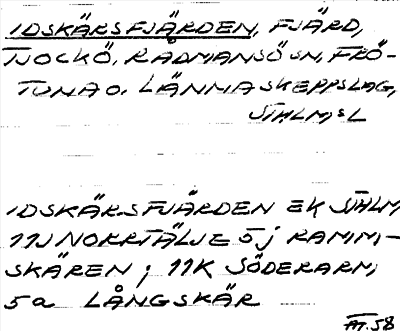 IDSKÄRSFJÄRDEN, FJÄRD,
TJOCKÖ, RÅDMANSÖ SN, FRÖ-
TUNA O. LÄNNA SKEPPSLAG,
STHLM,S L
IDSKÄRSFJÄRDEN EK STHLM
11J NORRTÄLJE 5j RAMM-
SKÄREN; 11K SÖDERARM;
5a LÅNGSKÄR